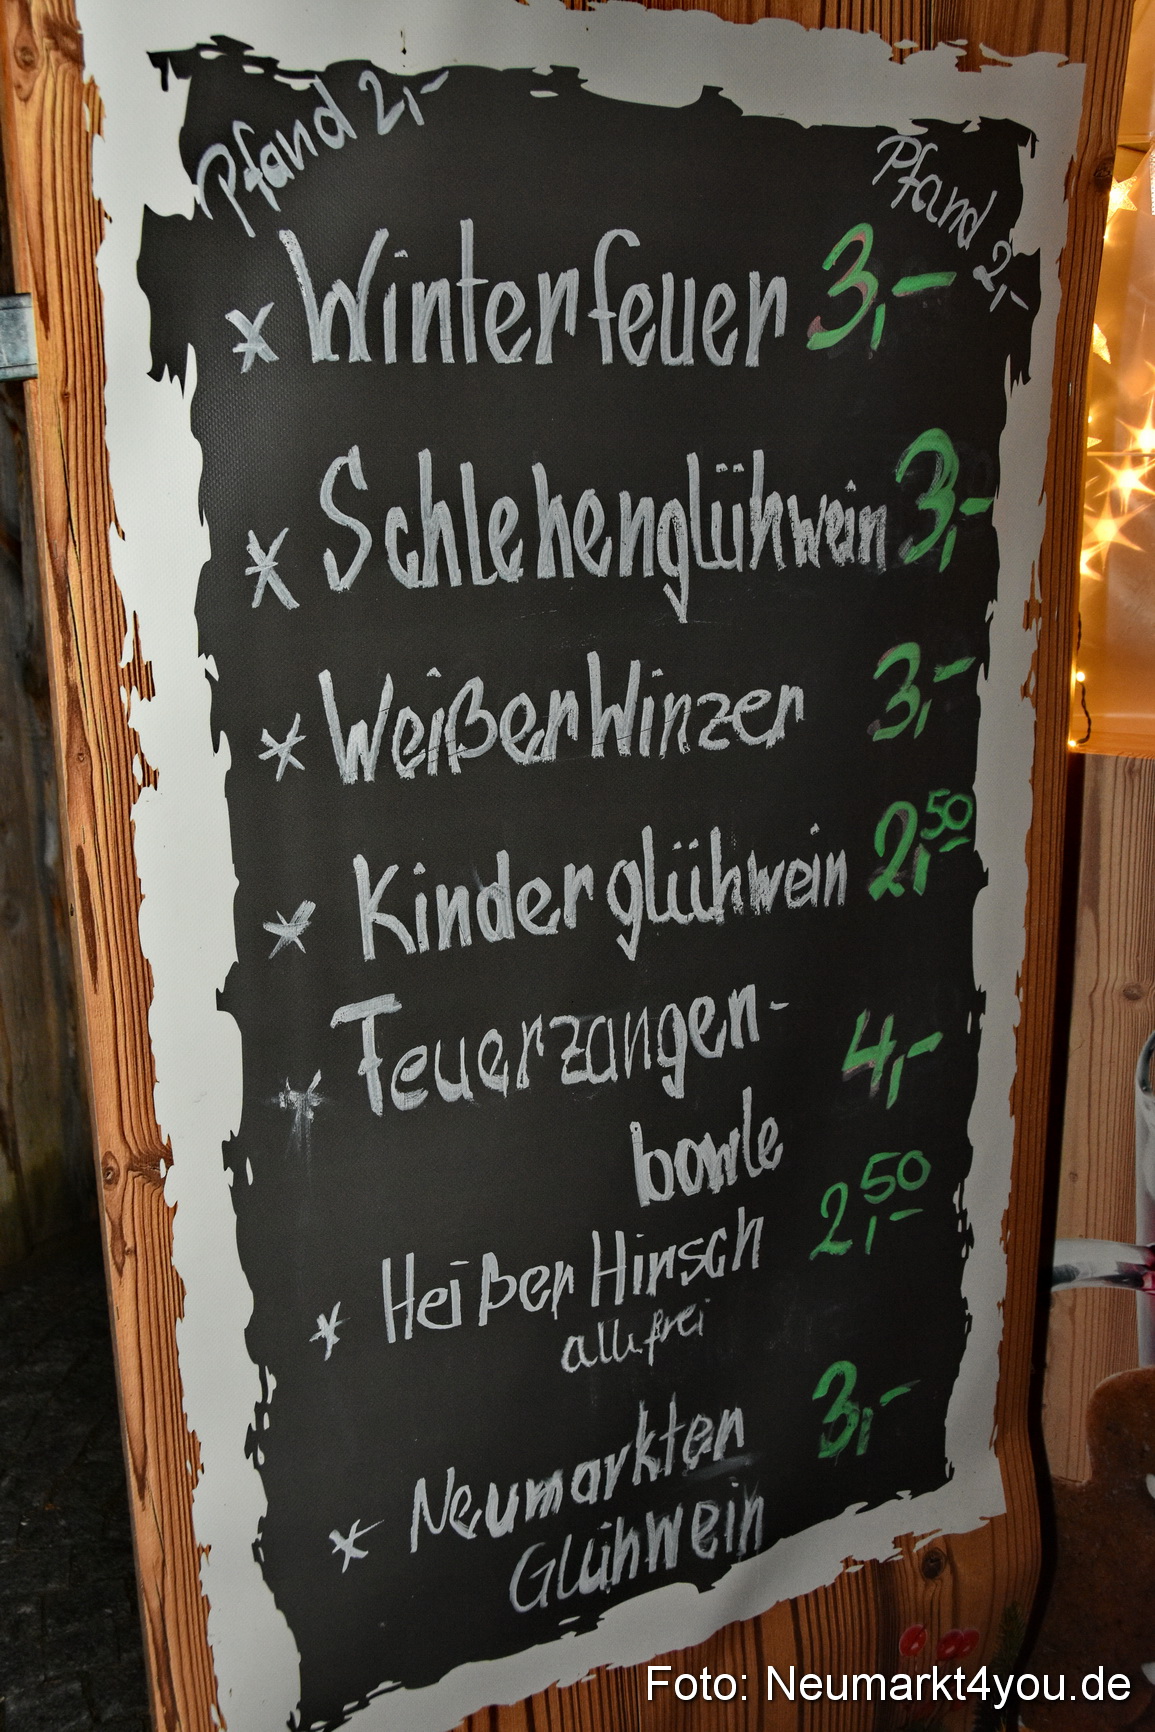 Pfand 2,-
Pfand 2,-
* Winterfeuer 3,-
* Schlehenglühwein 3,-
* Weißer Winzer 3,-
* Kinderglühwein 2,50
* Feuerzangen- 4,-
bowle
* Heißer Hirsch 2,50
alk.frei
* Neumarkter 3,-
Glühwein
Foto: Neumarkt4you.de